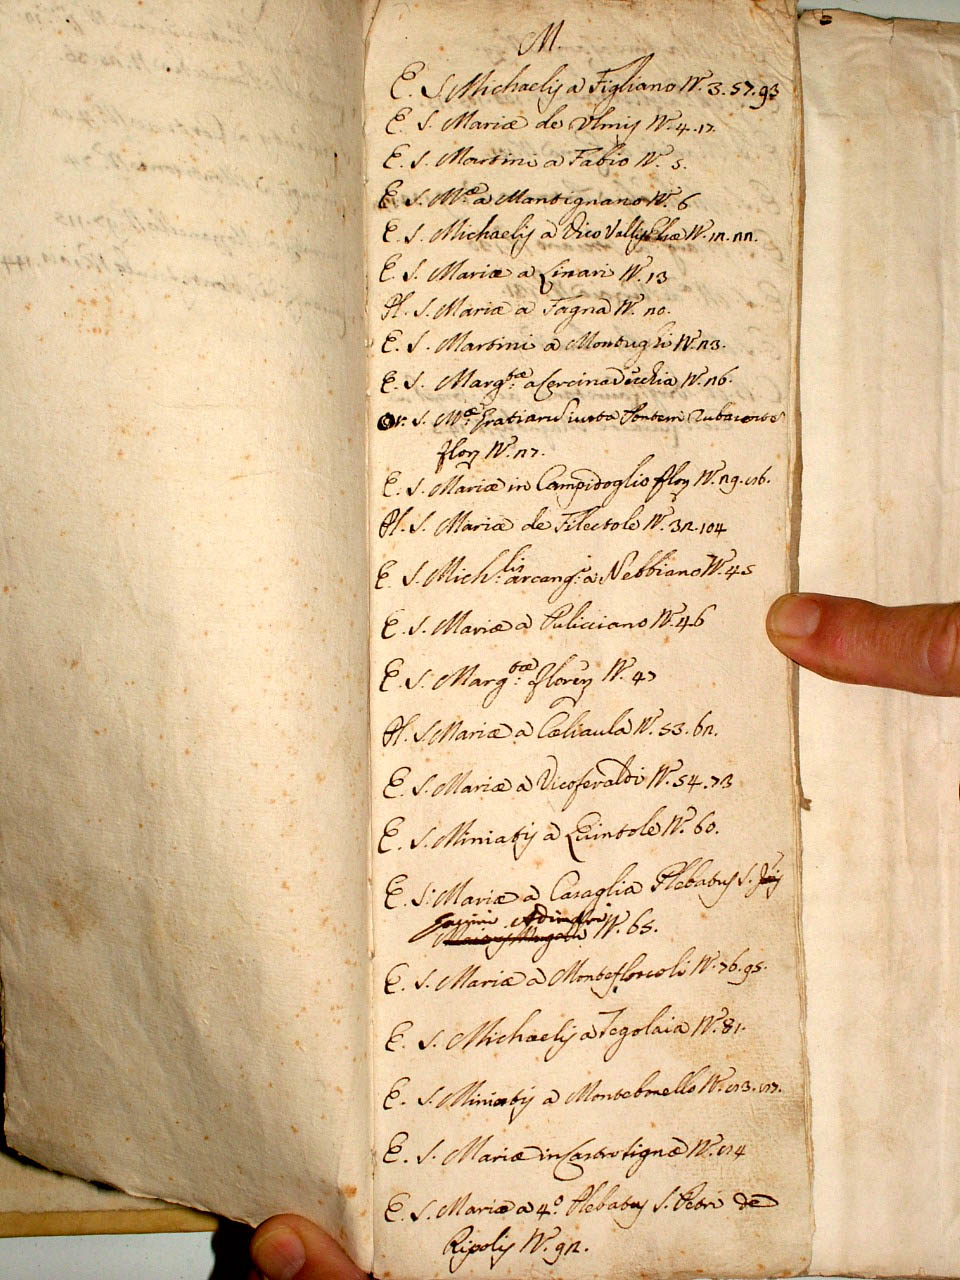 M.
E. S. Michaelis a Figliano N. 3. 57. 93
E. S. Mariæ de Ulmis N. 4. 17
E. S. Martini a Fabio N. 5.
E. S. Mæ a Mantignano N. 6
E. S. Michaelis a Vico Vallis Elsæ N. 12. 22.
E. S. Mariæ a Linari N. 13
Pl. S. Mariæ a Fagna N. 20.
E. S. Martini a Montughi N. 23.
E. S. Margtæ a Cercina N. 26.
Or. S. Mæ Gratiarum iuxta Pontem
flor N. 27.
E. S. Mariæ in Campidoglio flor N. 29.
Pl. S. Mariæ de Filettole N. 32. 104
E. S. Michlis arcang. a Nebbiano N. 45
E. S. Mariæ a Puliciano N. 46
E. S. Margtæ floren N. 47
Pl. S. Mariæ a N. 53. 62.
E. S. Mariæ a Vicoferaldi N. 54. 73
E. S. Miniatis a Quintole N. 60.
E. S. Mariæ a Casaglia Plebatus S.
N. 65.
E. S. Mariæ a Montefloscoli N. 76. 95.
E. S. Michaelis a Tegolaia N. 81.
E. S. Miniatis a Montebonello N.
E. S. Mariæ in Castro Signæ N.
E. S. Mariæ a 4.º Plebatus S. Petri de
Ripolis N. 92.